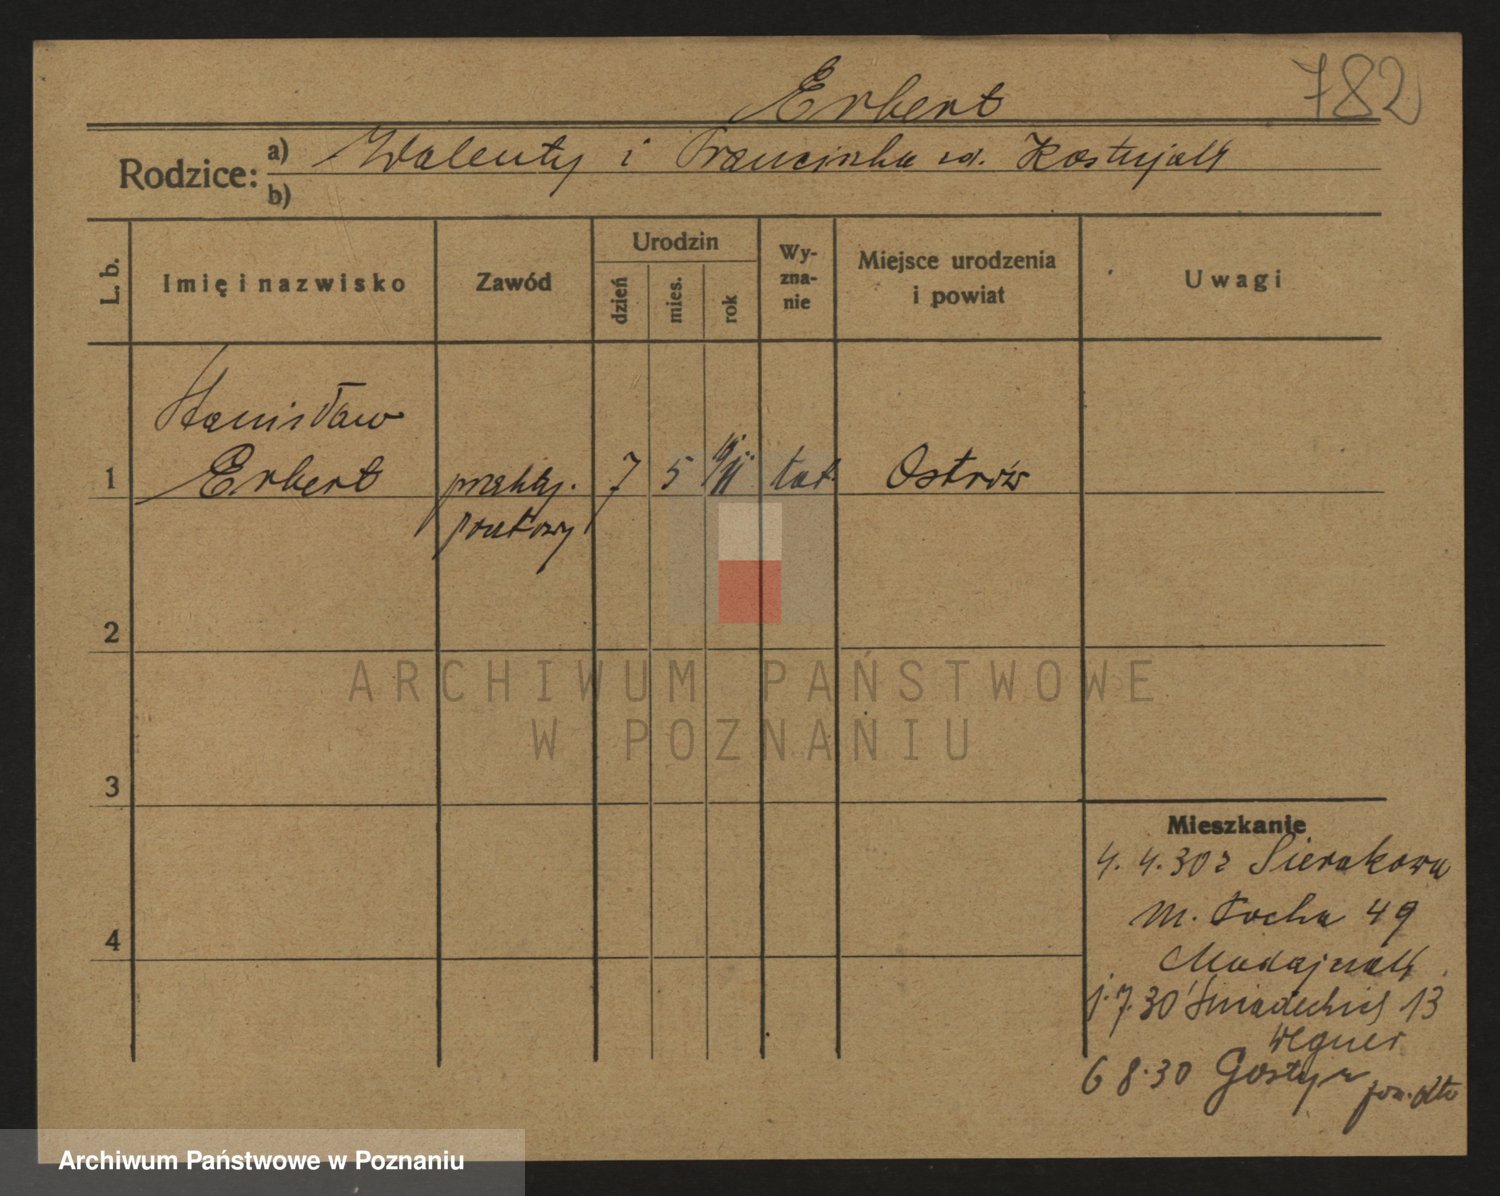 782
Erbert
Rodzice:
a) Walenty i Franciszka z d. Kostujak
b)
L. b.
Imię i nazwisko
Zawód
Urodzin
dzień
mies.
rok
Wy-
zna-
nie
Miejsce urodzenia
i powiat
Uwagi
Stanisław
1 Erbert
7 5 kat. Ostrów
2
3
4
ARCHIWUM PAŃSTWOWE
W POZNANIU
Mieszkanie
4. 4. 30 z Sierakowa
M. Focha 49
1. 7. 30 Śniadeckich 13
Wegner
6 8. 30 Gostyń
Archiwum Państwowe w Poznaniu